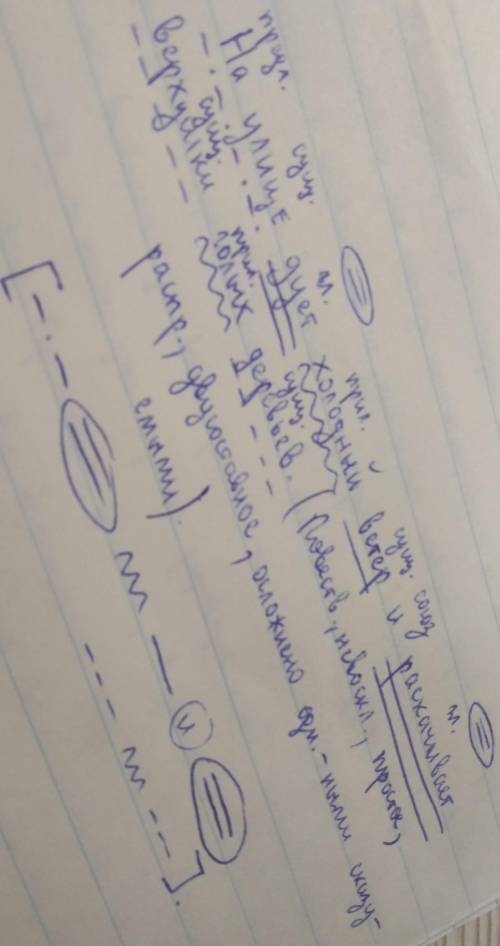 предл. сущ. гл. прил. сущ. союз гл.
На улице дует холодный ветер и раскачивает
сущ. прил. сущ.
верхушки голых деревьев. (Повеств., невоскл., простое,
распр., двусоставное, осложнено одн.-ными сказу-
емыми).
и